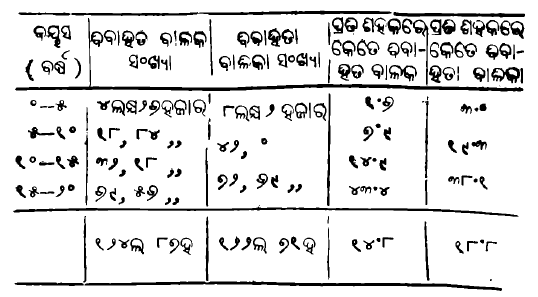 ବୟସ ବିବାହିତ ବାଳକ ବିବାହିତା ପ୍ରତି ଶହକରେ ପ୍ରତି ଶହକରେ
(ବର୍ଷ) ସଂଖ୍ୟା ବାଳିକା ସଂଖ୍ୟା କେତେ ବିବା- କେତେ ବିବା-
ହିତ ବାଳକ ହିତା ବାଳିକା
୦—୫ ୪ଲକ୍ଷ୨୬ହଜାର ୮ଲକ୍ଷ ୨ ହଜାର ୧·୬ ୩·୦
୫—୧୦ ୧୮, ୮୪ ,, ୪୨, ୦ ୭·୯ ୧୯·୩
୧୦—୧୫ ୩୨, ୧୮ ,, ୧୪·୯
୧୫—୨୦ ୬୯, ୫୬ ,, ୭୨, ୬୯ ,, ୪୩·୪ ୩୮·୧
୧୨୪ଲ ୮୭ହ ୧୨୨ଲ ୭୧ହ ୧୪·୮ ୧୮·୮